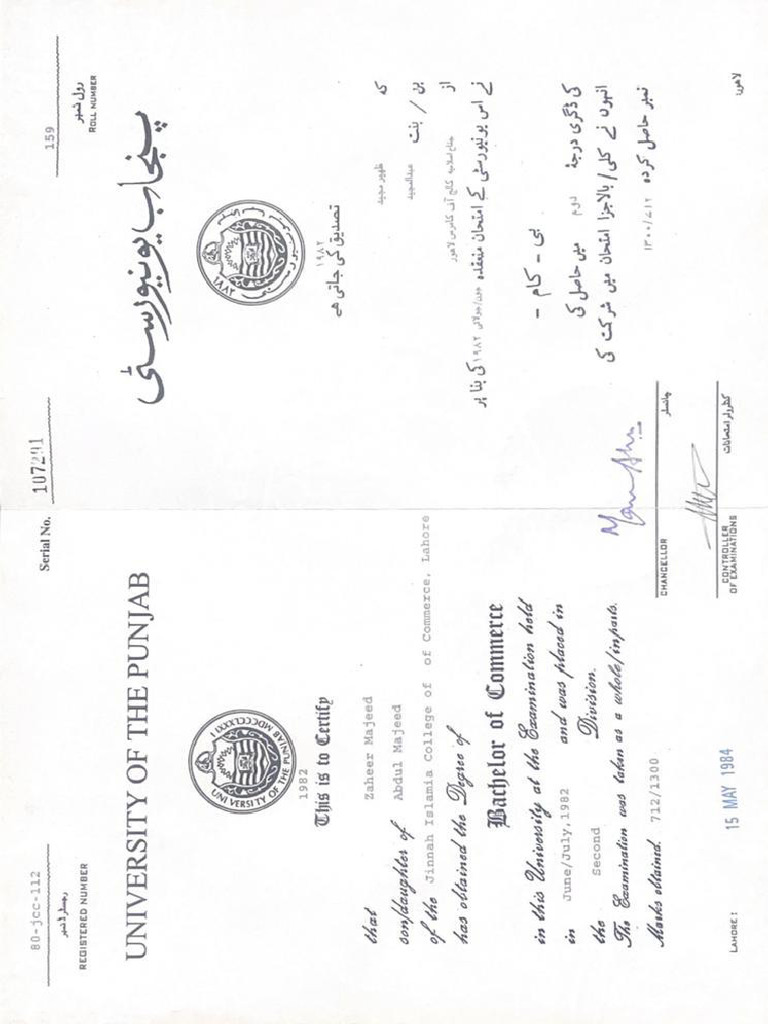 80-jcc-112
رجسٹرڈ نمبر
REGISTERED NUMBER
Serial No. 107291
159
رول نمبر
ROLL NUMBER
UNIVERSITY OF THE PUNJAB
UNIVERSITY OF THE PUNJAB MDCCCLXXXII
1982
This is to Certify
that Zaheer Majeed
son/daughter of Abdul Majeed
of the Jinnah Islamia College of of Commerce, Lahore
has obtained the Degree of
Bachelor of Commerce
in this University at the Examination held
in June/July,1982 and was placed in
the Second Division.
The Examination was taken as a whole/inparts.
Marks obtained. 712/1300
LAHORE: 15 MAY 1984
پنجاب یونیورسٹی
۱۹۸۲
تصدیق کی جاتی ہے
کہ ظہیر مجید
بن / بنت عبدالمجید
از جناح اسلامیہ کالج آف کامرس لاہور
نے اس یونیورسٹی کے امتحان منعقدہ جون/جولائی ۱۹۸۲ کی بنا پر
بی - کام -
کی ڈگری درجۂ دوم میں حاصل کی
انہوں نے کلی / بالاجزا امتحان میں شرکت کی
نمبر حاصل کردہ ۷۱۲/۱۳۰۰
لاہور:
CHANCELLOR
چانسلر
CONTROLLER
OF EXAMINATIONS
کنٹرولر امتحانات